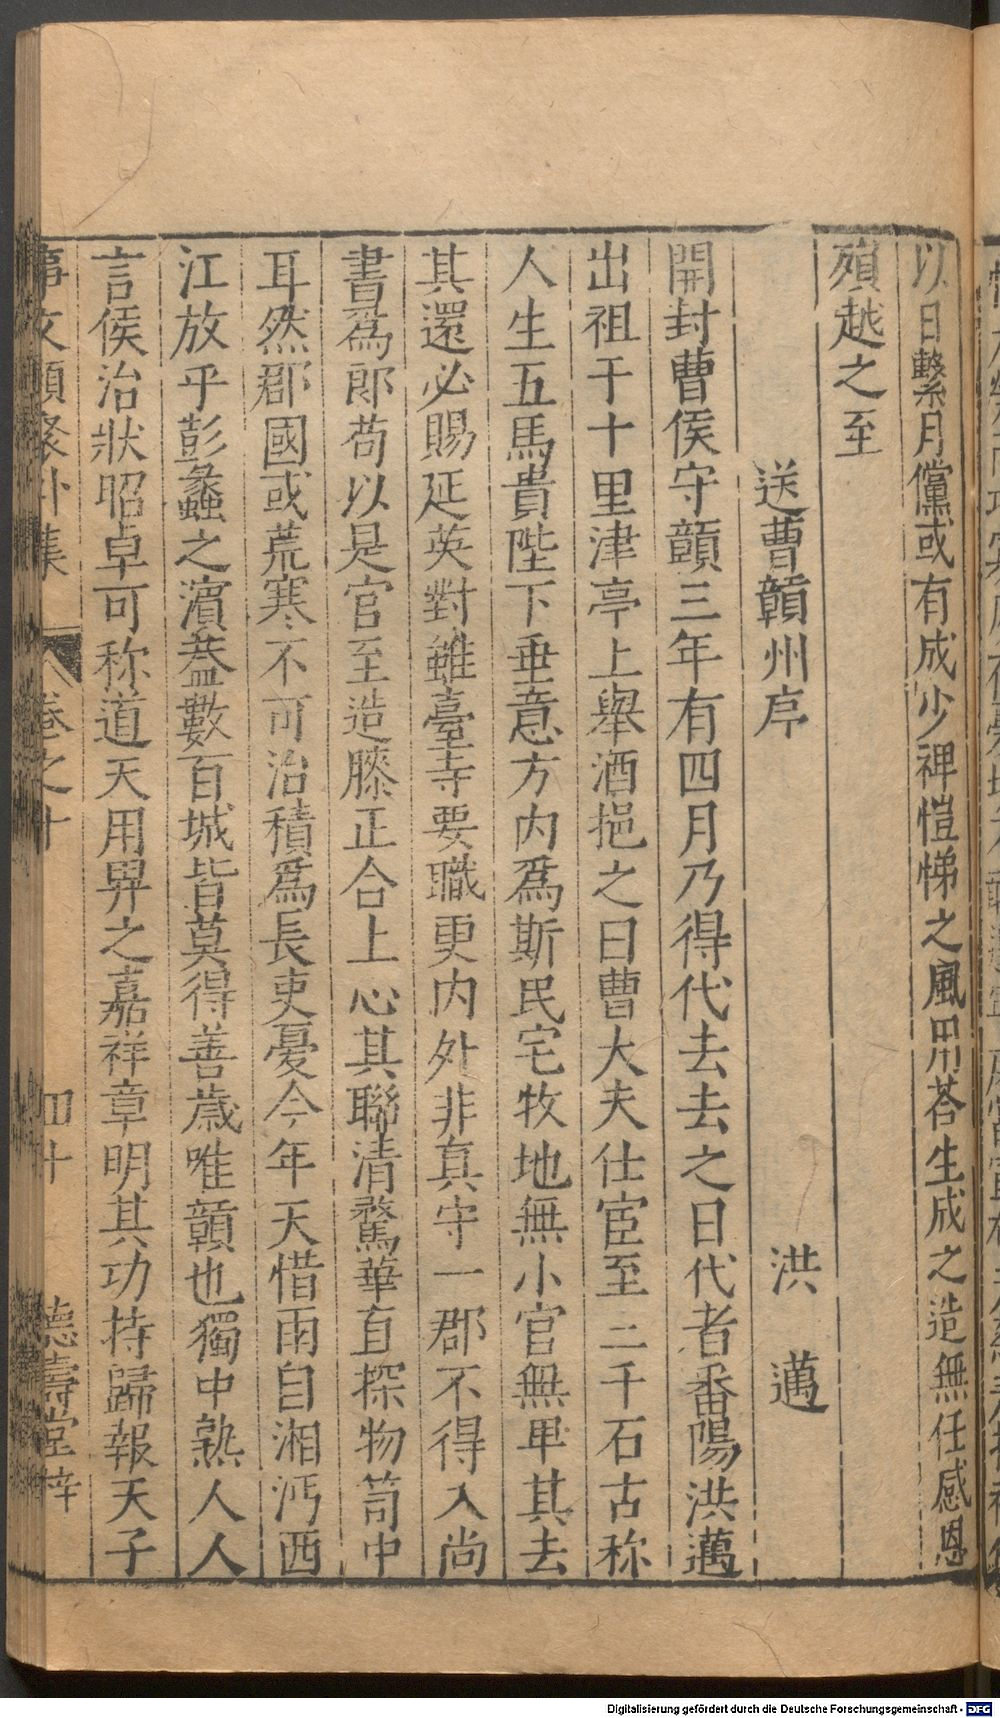 以日繫月儻或有成少裨愷悌之風用荅生成之造無任感恩
殞越之至
送曹贑州序　洪邁
開封曹侯守贑三年有四月乃得代去去之日代者番陽洪邁
出祖于十里津亭上舉酒挹之曰曹大夫仕宦至二千石古称
人生五馬貴陛下垂意方内爲斯民宅牧地無小官無卑其去
其還必賜延英對雖臺寺要職更内外非真守一郡不得入尚
書爲郎苟以是官至造膝正合上心其聯清騖華直探物笥中
耳然郡國或荒寒不可治積爲長吏憂今年天惜雨自湘沔西
江放乎彭蠡之濵葢數百城皆莫得善歳唯贑也獨中熟人人
言侯治狀昭卓可称道天用畀之嘉祥章明其功持歸報天子
事文類聚外集　卷之十　四十　德壽堂梓
Digitalisierung gefördert durch die Deutsche Forschungsgemeinschaft - DFG